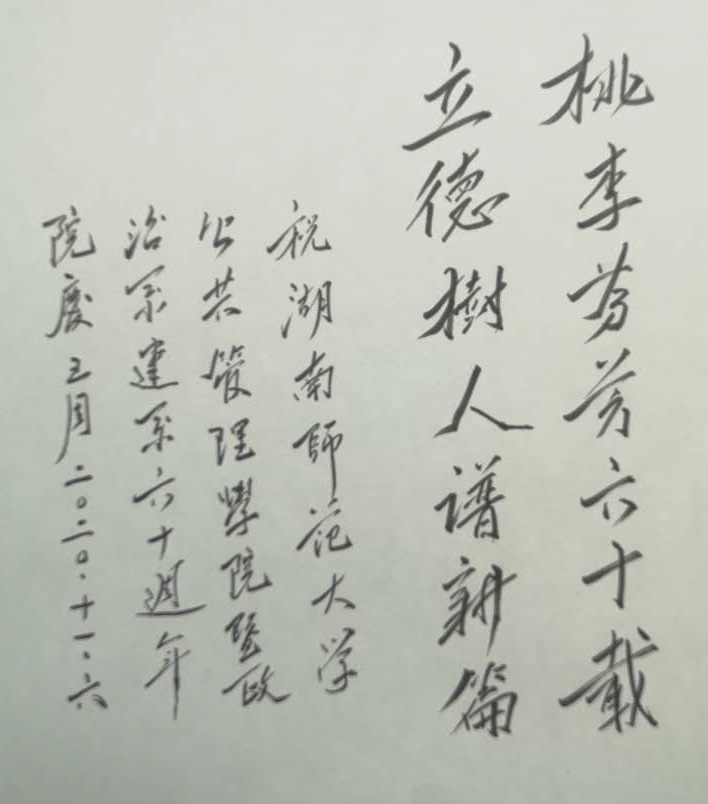 桃李芬芳六十載
立德樹人譜新篇
祝湖南師范大学
公共管理學院暨政
治系建系六十週年
院慶五周二〇二〇·十一·六